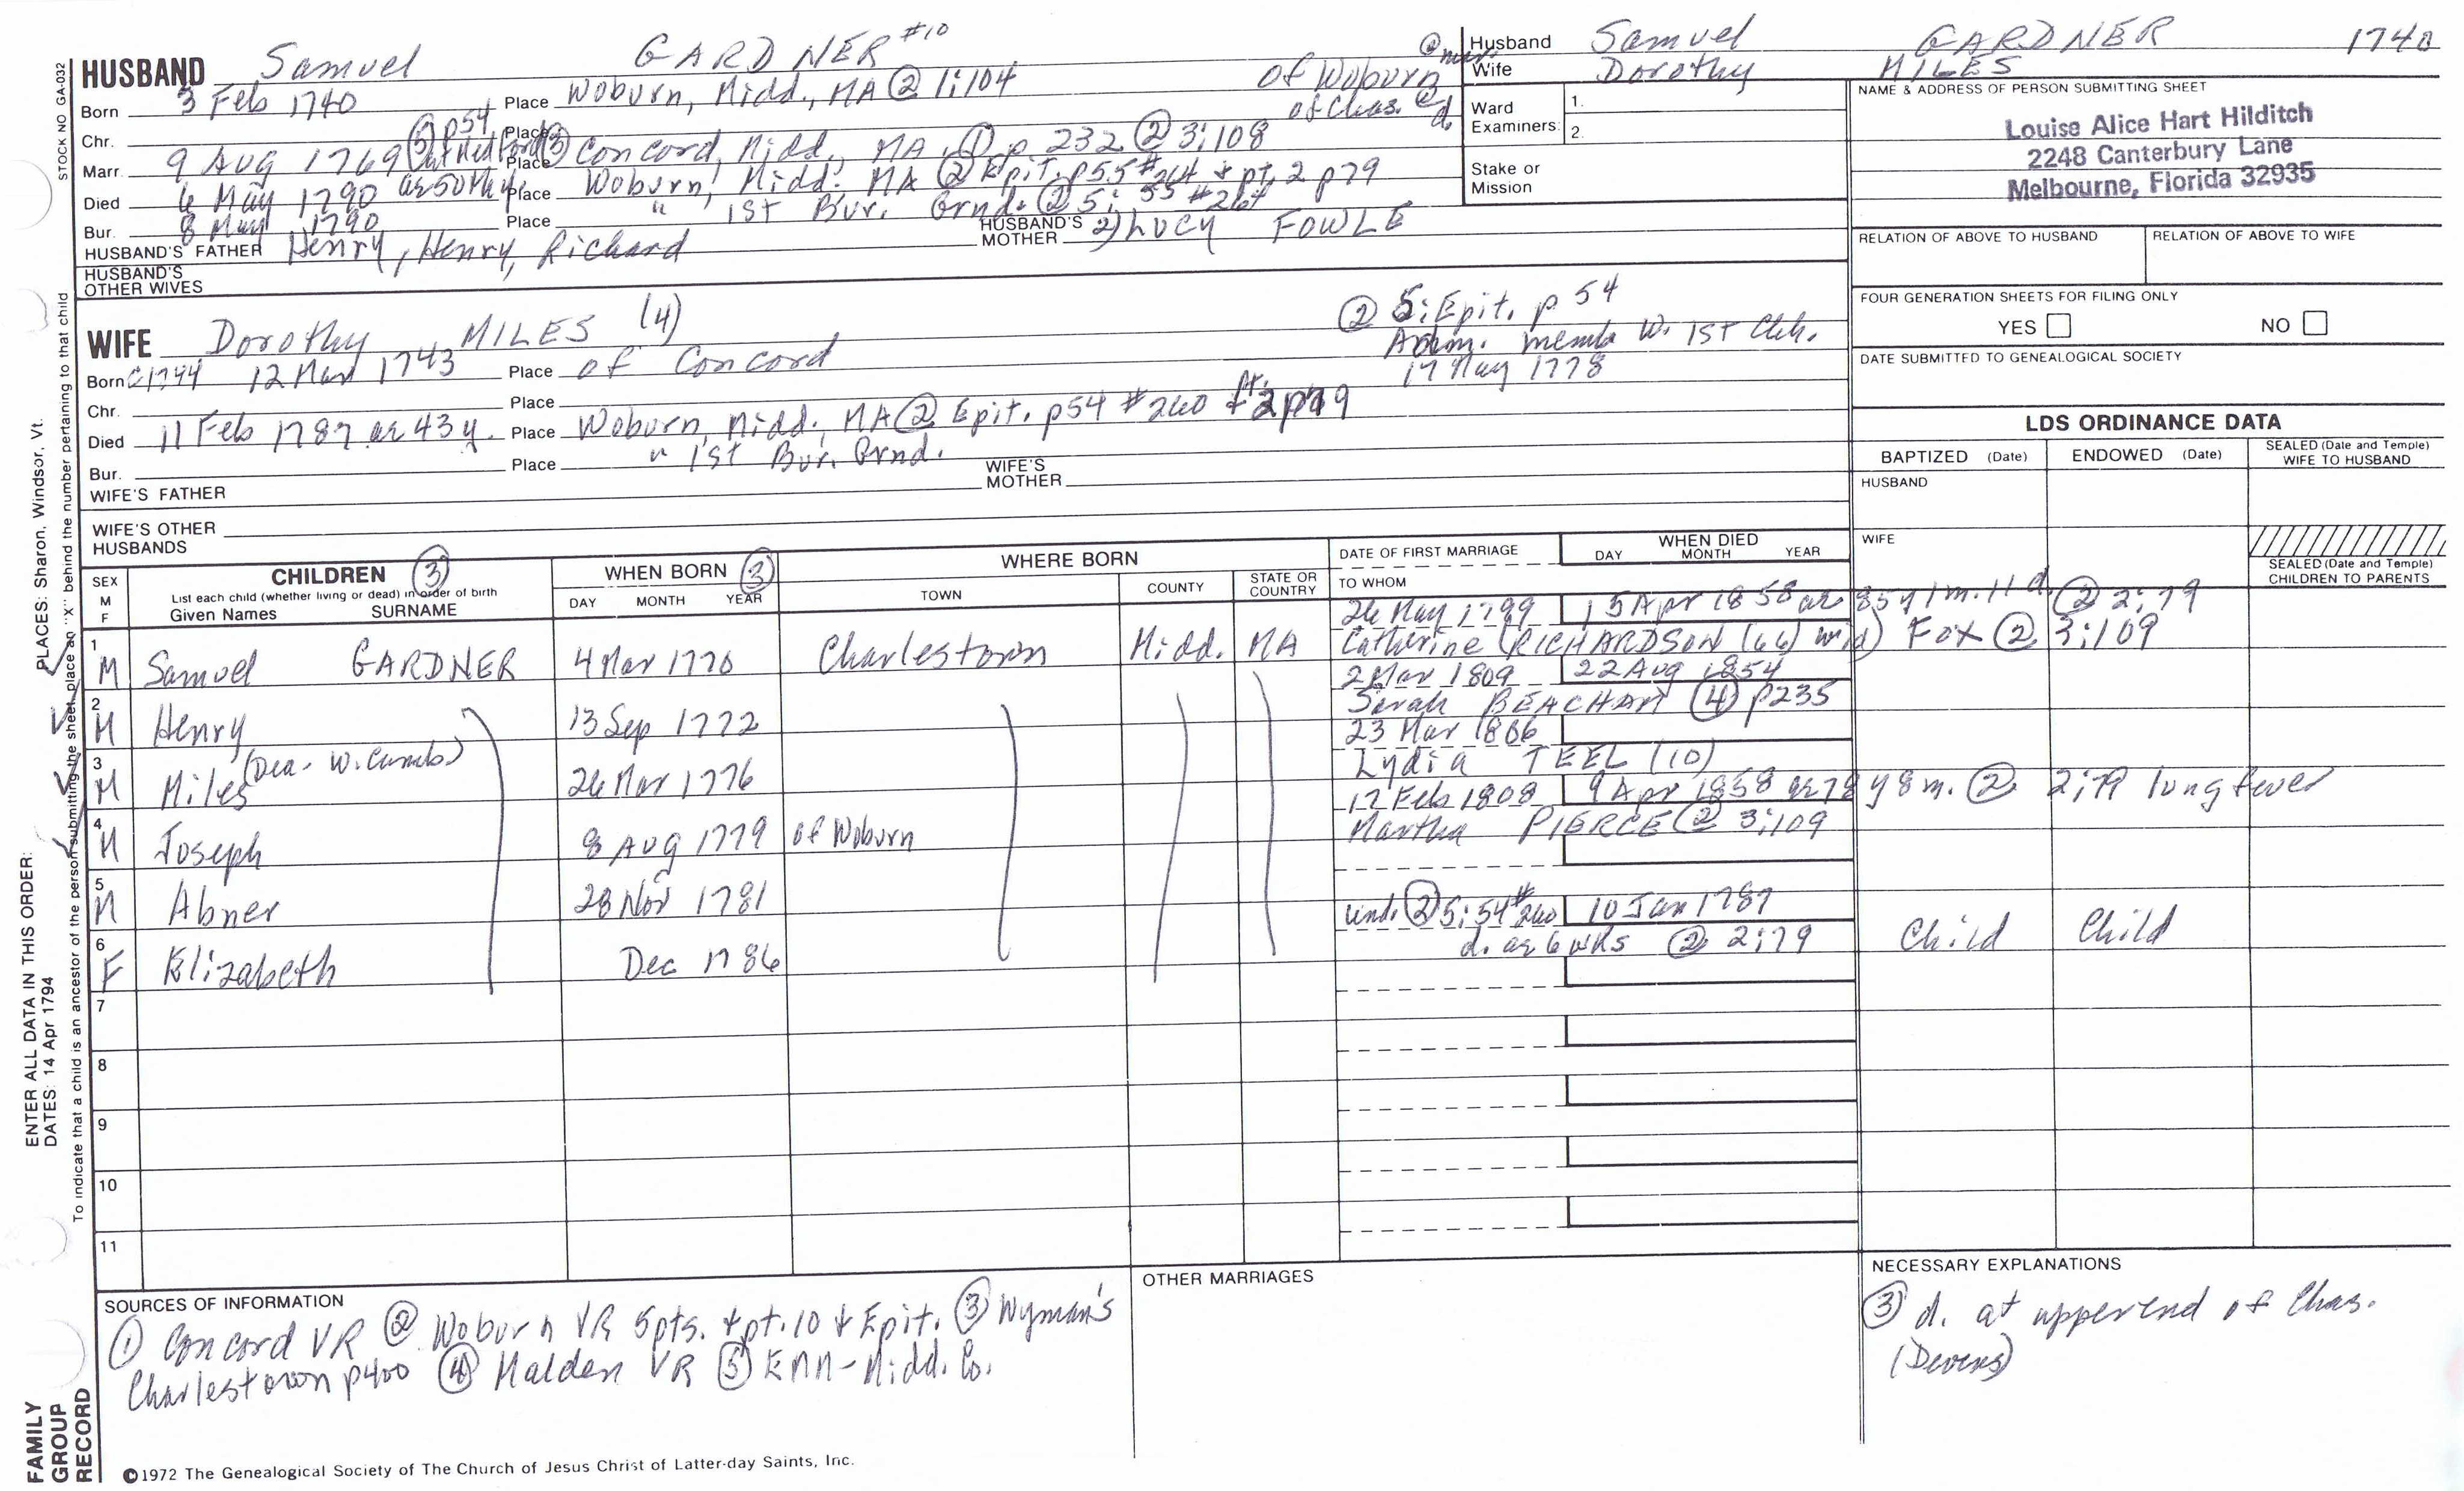 STOCK NO GA-032
HUSBAND Samuel GARDNER #10
Born 3 Feb 1740 Place Woburn, Midd., MA ② 1:104 of Woburn
Chr. Place of Chas. ②
Marr. 9 Aug 1769 ⑤ p54 at Medford ③ Place Concord, Midd., MA ① p 232 ② 3:108
Died 6 May 1790 ae 50th y. Place Woburn, Midd., MA ② Epit. p55 #264 & pt. 2 p79
Bur. 8 May 1790 Place " 1st Bur. Grnd. ② 5: 55 #264
HUSBAND'S FATHER Henry, Henry, Richard HUSBAND'S MOTHER 2) Lucy FOWLE
HUSBAND'S OTHER WIVES
WIFE Dorothy MILES (4)
② 5: Epit. p 54
Adm. memb W. 1st Chh.
17 May 1778
Born C1744 12 Mar 1743 Place of Concord
Chr. Place
Died 11 Feb 1787 ae 43 y. Place Woburn, Midd., MA ② Epit. p54 #260 & pt. 2 p79
Bur. Place " 1st Bur. Grnd.
WIFE'S FATHER WIFE'S MOTHER
WIFE'S OTHER HUSBANDS
Husband Samuel GARDNER 1740
Wife Dorothy MILES
Ward Examiners: 1.
2.
Stake or Mission
NAME & ADDRESS OF PERSON SUBMITTING SHEET
Louise Alice Hart Hilditch
2248 Canterbury Lane
Melbourne, Florida 32935
RELATION OF ABOVE TO HUSBAND RELATION OF ABOVE TO WIFE
FOUR GENERATION SHEETS FOR FILING ONLY
YES NO
DATE SUBMITTED TO GENEALOGICAL SOCIETY
LDS ORDINANCE DATA
BAPTIZED (Date) ENDOWED (Date) SEALED (Date and Temple) WIFE TO HUSBAND
HUSBAND
WIFE
SEALED (Date and Temple) CHILDREN TO PARENTS
SEX M F CHILDREN ③ List each child (whether living or dead) in order of birth Given Names SURNAME
WHEN BORN ③ DAY MONTH YEAR
WHERE BORN TOWN COUNTY STATE OR COUNTRY
DATE OF FIRST MARRIAGE TO WHOM
WHEN DIED DAY MONTH YEAR
26 May 1799 15 Apr 1858 ae 85 y 1m. 11 d. ② 2:79
1 M Samuel GARDNER 4 Mar 1770 Charlestown Midd. MA Catherine (RICHARDSON (66) wid) Fox ② 3:109
2 Mar 1809 22 Aug 1854
2 M Henry 13 Sep 1772 Sarah BEACHAM ④ p235
(Dea. W. Camb.) 23 Mar 1806
3 M Miles 26 Mar 1776 Lydia TEEL (10)
17 Feb 1808 9 Apr 1858 ae 78 y 8 m. ② 2:79 lung fever
4 M Joseph 8 Aug 1779 of Woburn Martha PIERCE ② 3:109
5 M Abner 28 Nov 1781
und. ② 5:54 #260 10 Jan 1787
6 F Elizabeth Dec 1786 d. ae 6 wks ② 2:79 Child Child
7
8
9
10
11
SOURCES OF INFORMATION
① Concord VR ② Woburn VR 5pts. & pt. 10 & Epit. ③ Wyman's
Charlestown p400 ④ Malden VR ⑤ EMM-Midd. Co.
OTHER MARRIAGES
NECESSARY EXPLANATIONS
③ d. at upper end of Chas.
(Devens)
©1972 The Genealogical Society of The Church of Jesus Christ of Latter-day Saints, Inc.
FAMILY GROUP RECORD
ENTER ALL DATA IN THIS ORDER:
DATES: 14 Apr 1794
PLACES: Sharon, Windsor, Vt.
To indicate that a child is an ancestor of the person submitting the sheet, place an "X" behind the number pertaining to that child